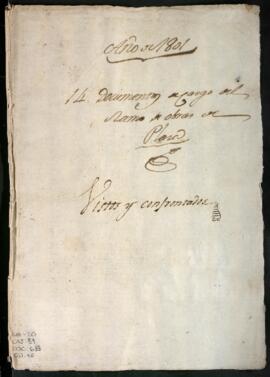 Año de 1801
14 documentos de cargo del
Ramo de obras de
Plaza
Vistos y confrontados